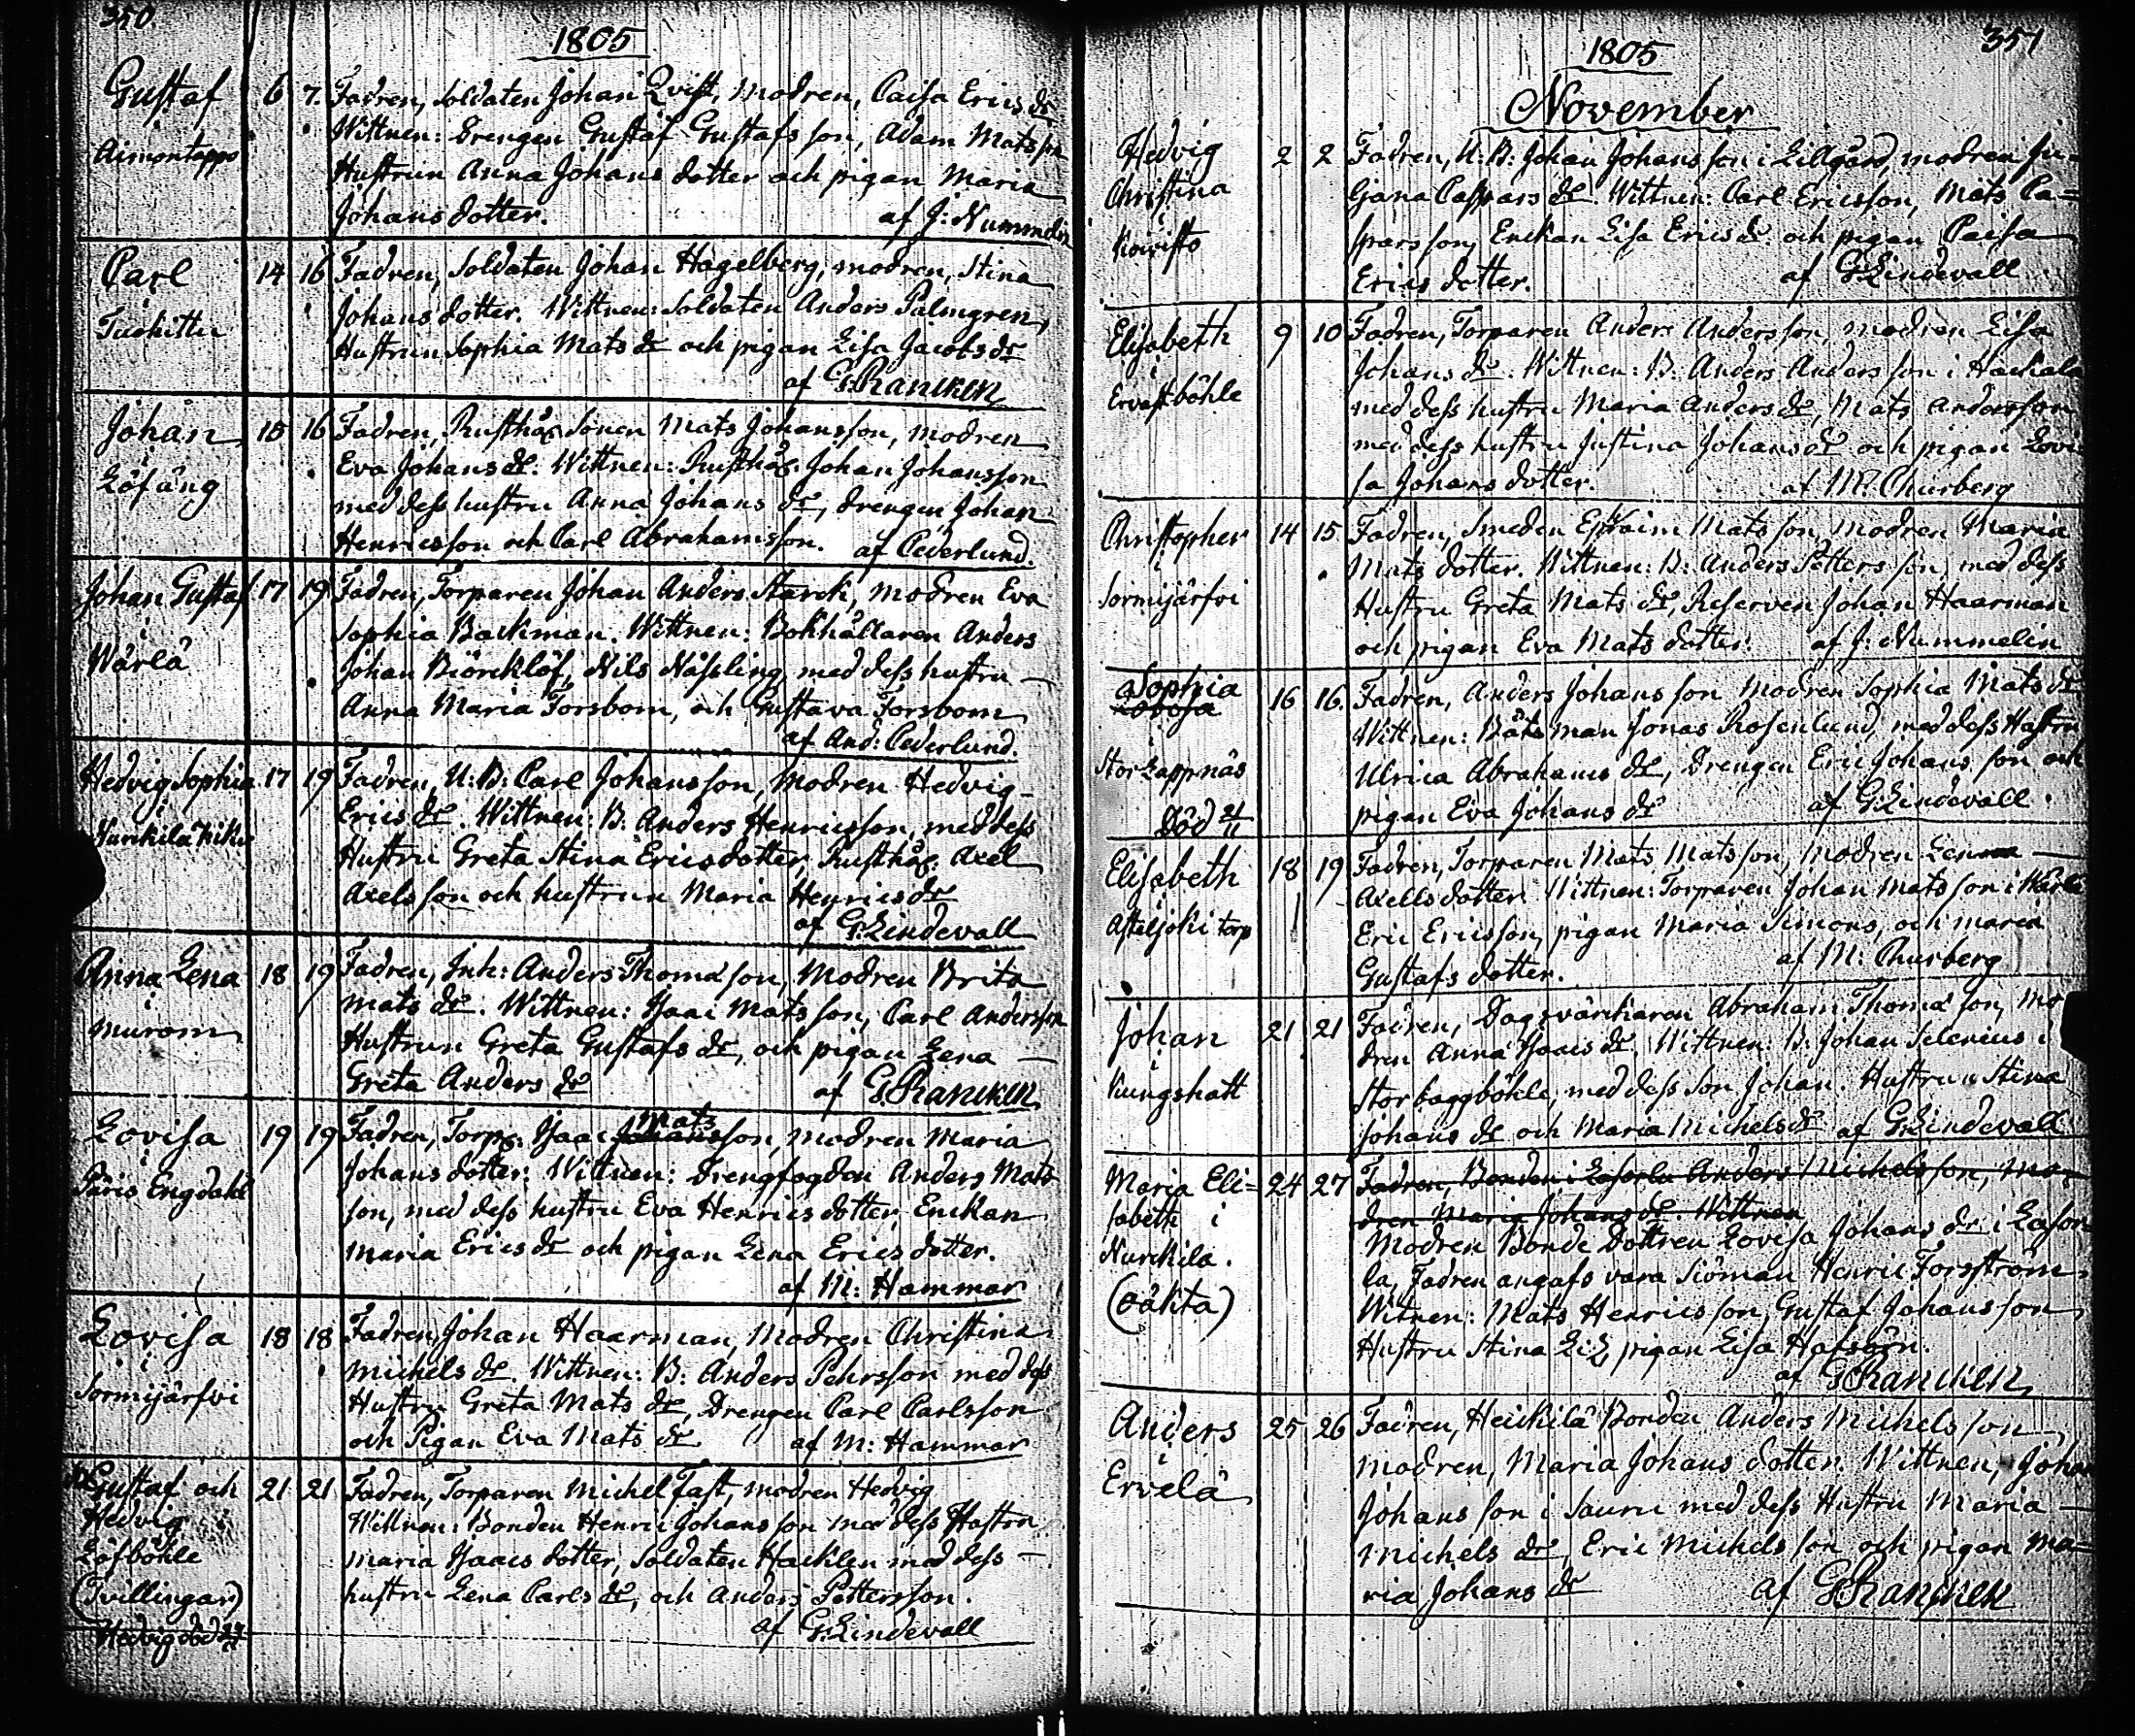 350.
1805
Gustaf 6 7. Fadren, Soldaten Johan Qvist, Modren, Caisa Erics dr
i
Aimontappo
Wittnen: Drengen Gustaf Gustafsson, Adam Matsson
Hustrun Anna Johans dotter och pigan Maria
Johans dotter. af J: Nummelin
Carl 14 16 Fadren, Soldaten Johan Hagelberg, modren, Stina
i
Tuokittu
Johans dotter. Wittnen: Soldaten Anders Palmgren,
Hustrun Sophia Mats dr och pigan Lisa Jacobs dr
af G: Rancken
Johan 15 16 Fadren, Rusthåls Sonen Mats Johansson, modren
i
Löfång
Eva Johans dr. Wittnen: Rusthål. Johan Johansson
med dess hustru Anna Johans dr, drengen Johan
Henricsson och Carl Abrahamsson. af Cederlund.
Johan Gustaf 17 19 Fadren, Torparen Johan Anders Starck, Modren Eva
i
Wärlä
Sophia Backman. Wittnen: Bokhållaren Anders
Johan Biörcklöf, Nils Nässling med dess hustru
Anna Maria Forsbom, och Gustava Forsbom
af And: Cederlund.
Hedvig Sophia 17 19 Fadren, U: B: Carl Johansson, Modren Hedvig
i
Nurckila
Erics dr. Wittnen: B: Anders Henricsson, med dess
Hustru Greta Stina Ericsdotter, Rusthål. Axel
Axelsson och hustrun Maria Henrics dr
af G: Lindevall
Anna Lena 18 19 Fadren, Inh: Anders Thomasson, Modren Brita
i
Murom
Mats dr. Wittnen: Isaac Matsson, Carl Andersson
Hustrun Greta Gustafs dr, och pigan Lena
Greta Anders dr af G: Rancken
Lovisa 19 19 Fadren, Torp. Isaac Johansson, modren Maria
Mats
i
Päris Engdahl
Johans dotter: Wittnen: Drengfogden Anders Mats
son, med dess hustru Eva Henrics dotter, Enckan
Maria Erics dr och pigan Lena Erics dotter.
af M: Hammar
Lovisa 18 18 Fadren, Johan Haarman, Modren Christina
i
Sormijärfvi
Michels dr. Wittnen: B: Anders Pehrsson med dess
Hustru Greta Mats dr, Drengen Carl Carlsson
och Pigan Eva Mats dr af M: Hammar
Gustaf och 21 21 Fadren, Torparen Michel Fast, modren Hedvig
Hedvig i
Löfböhle
(Tvillingar)
Hedvig död
Wittnen: Bonden Henric Johansson med dess Hustru
Maria Isaacs dotter, Soldaten Hacklin med dess
hustru Lena Carls dr, och Anders Pettersson.
af G: Lindevall
351
1805
November
Hedvig 2 2 Fadren, U: B: Johan Johansson i Lillgård, modren Ju=
Christina
i
Koivisto
liana Caspars dr. Wittnen: Carl Ericsson, Mats Ca=
sparsson, Enckan Lisa Erics dr och pigan Caisa
Erics dotter. af G: Lindevall
Elisabeth 9 10 Fadren, Torparen Anders Andersson, modren Lisa
i
Ervastböhle
Johans dr: Wittnen: B: Anders Andersson i Hackala
med dess hustru Maria Anders dr, Mats Andersson
med dess hustru Justina Johans dr och pigan Lovi
sa Johans dotter. af M: Churberg
Christopher 14 15 Fadren, Smeden Ephraim Matsson, modren Maria
i
Sormijärfvi
Mats dotter. Wittnen: B: Anders Pettersson, med dess
Hustru Greta Mats dr, Reserven Johan Haarman
och pigan Eva Mats dotter. af J: Nummelin
Sophia 16 16. Fadren, Anders Johansson Modren Sophia Mats dr
Lovisa
i
Storkappnäs
Död 21/11
Wittnen: Båtsman Jonas Rosenlund, med dess Hustru
Ulrica Abrahams dr, Drengen Eric Johansson och
pigan Eva Johans dr af G: Lindevall.
Elisabeth 18 19 Fadren, Torparen Mats Matsson, Modren Lena
i
torp
Axells dotter. Wittnen: Torparen Johan Matsson i Wärlä
Eric Ericsson, pigan Maria Simons, och Maria
Gustafs dotter. af M: Churberg
Johan 21 21 Fadren, Dagsvärckaren Abraham Thomasson, Mo
i
Kungshatt
dren Anna Isaacs dr. Wittnen: B: Johan Selenius i
Storbaggböhle, med dess Son Johan. Hustrun Stina
Johans dr och Maria Michels dr af G: Lindevall
Maria Eli= 24 27 Fadren, Bonden i Lasorla Anders Michelsson, Mo=
sabeth i
Nurckila.
(oäkta)
dren Maria Johans dr. Wittnen
Modren Bonde Dottren Lovisa Johans dr i Lasor
la, Fadren angafs vara Siöman Henric Forsström
Witnen: Mats Henricsson, Gustaf Johansson
Hustru Stina Liz, pigan Lisa Hafsörn.
af G: Rancken
Anders 25 26 Fadren, Heickilä Bonden Anders Michelsson
i
Ervelä
modren, Maria Johans dotter. Wittnen, Johan
Johansson i Sauru med dess Hustru Maria
Michels dr, Eric Michelsson och pigan Ma=
ria Johans dr af G: Rancken